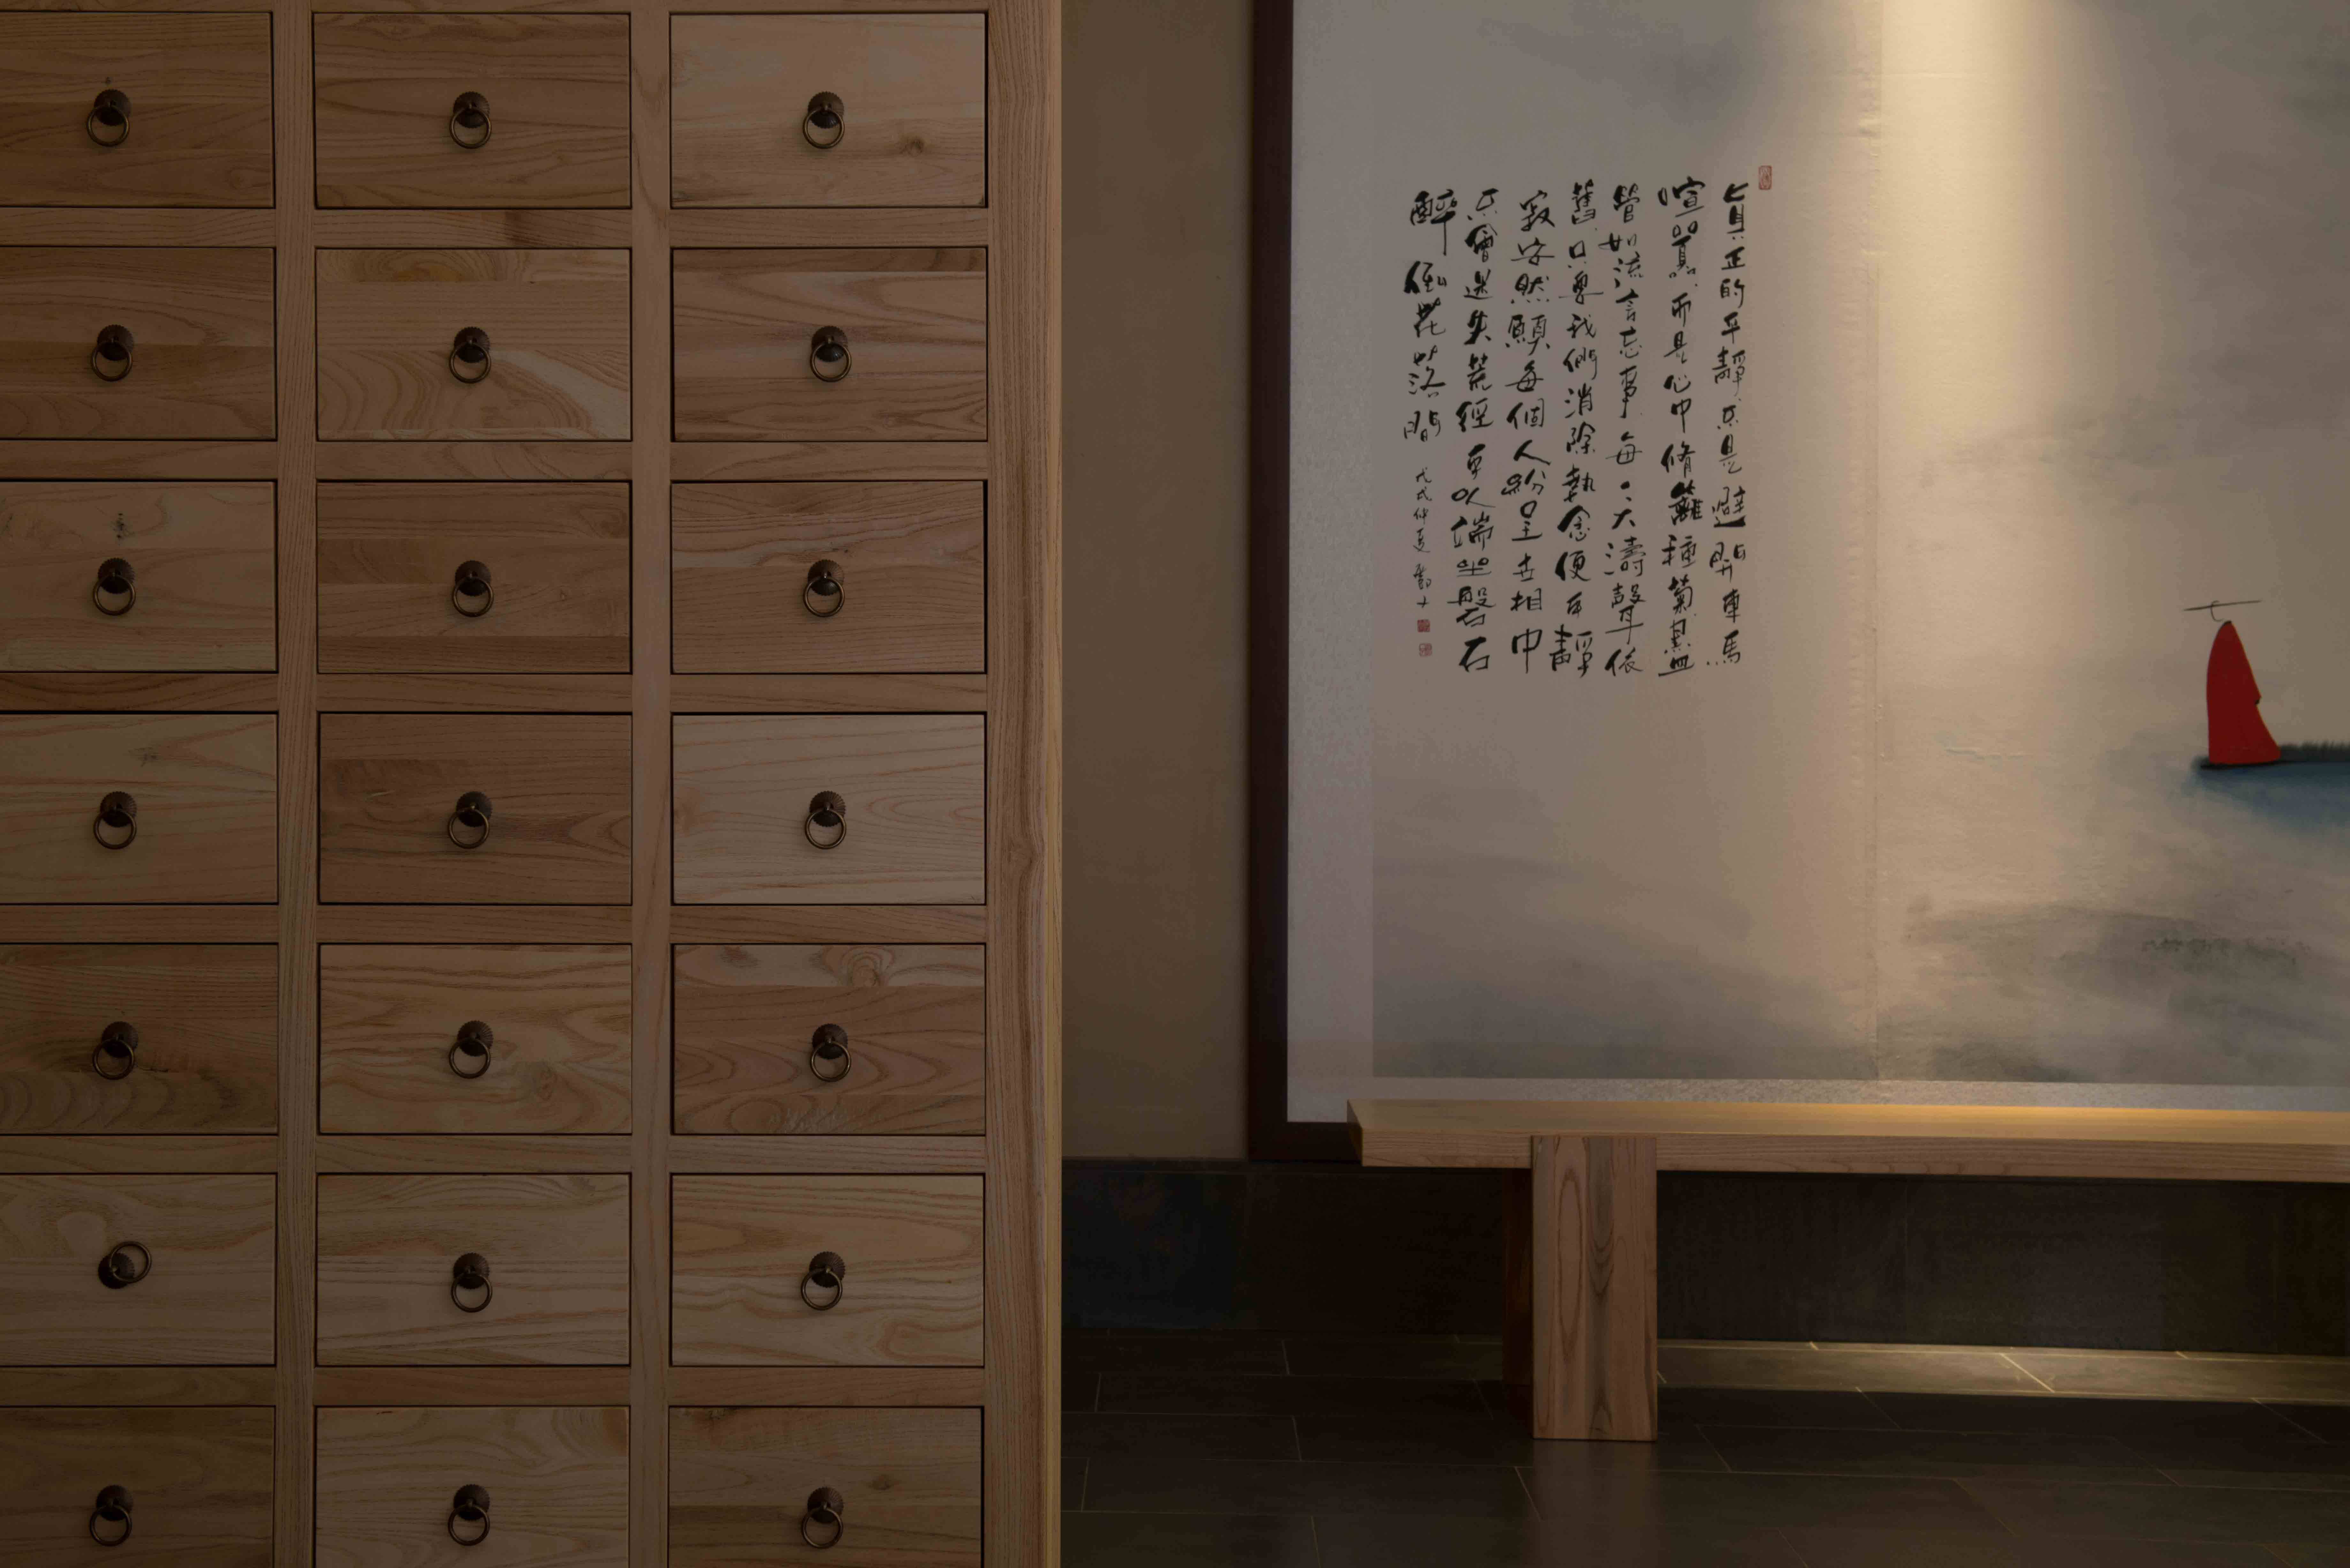 真正的平靜不是避開車馬
喧囂而是心中脩籬種菊盡
管如流言忘事每一天濤聲依
舊只要我們消除執念便可靜
寂安然願每個人紛呈世相中
不會迷失荒徑可以端坐磐石
醉倒花落間
戊戌仲夏